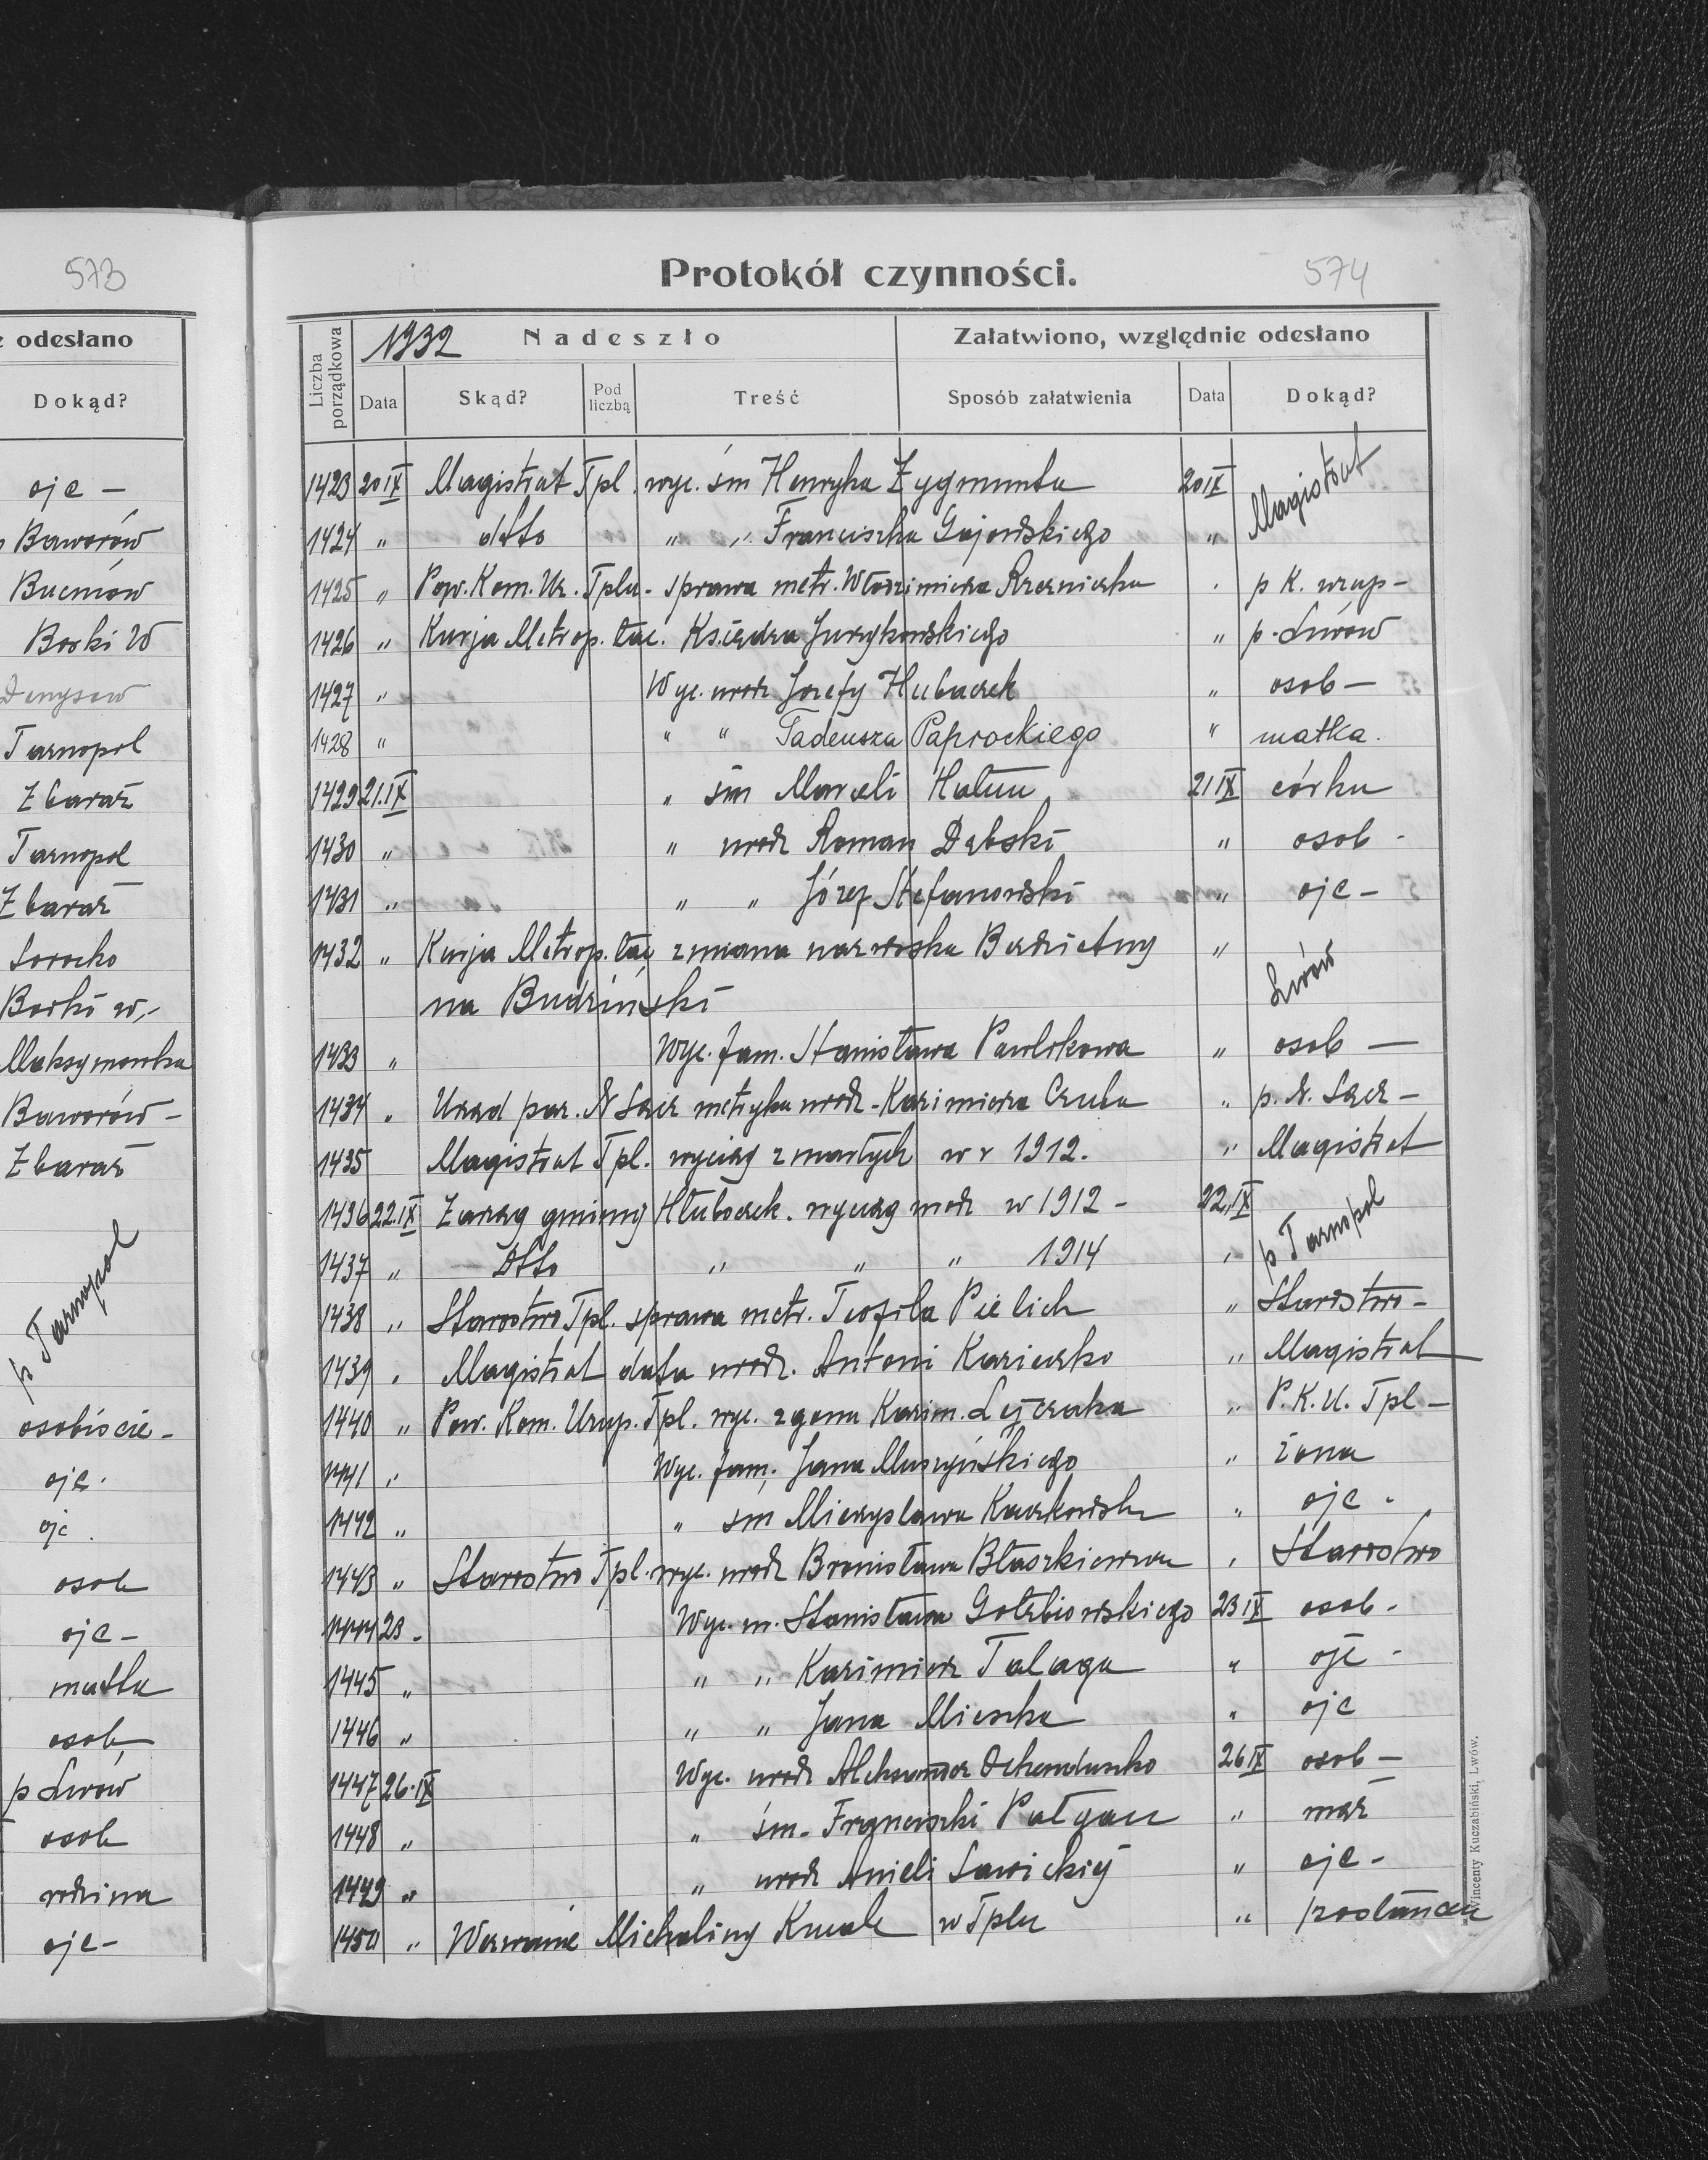 573
ż odesłano
Dokąd?
ojc –
Baworów
Bucniów
Borki W
Denysow
Tarnopol
Zbaraż
Tarnopol
Zbaraż
Sorocko
Borki w,-
Maksymowka
Baworów –
Zbaraż
p Tarnopol
osobiście –
ojc.
ojc.
osob
ojc –
matka
osob
p Lwów
osob
rodzina
ojc –
Protokół czynności.
574
Liczba porządkowa
1932
Nadeszło
Załatwiono, względnie odesłano
Data Skąd? Pod liczbą Treść Sposób załatwienia Data Dokąd?
1423 20 IX Magistrat Tpl. wyc. śm Henryka Zygmunta 20 IX Magistrat
1424 " dtto " " Franciszka Gajewskiego "
1425 " Pow. Kom. Uz. Tplu - sprawa metr. Włodzimierza Rzeźniczka " p K. uzup –
1426 " Kurja Metrop. łac. Księdza Jurzykowskiego " p. Lwów
1427 " Wyc. urodz Jozefy Hubaczek " osob –
1428 " " " Tadeusza Paprockiego " matka.
1429 21.IX " śm Marceli Hatun 21 IX córka
1430 " " urodz Roman Dębski " osob -
1431 " " " Józef Stefanowski " ojc –
1432 " Kurja Metrop. łac zmiana nazwiska Bezdzietny " Lwów
na Budziński
1433 " Wyc. fam. Stanisława Pawlikowa " osob –
1434 " Urząd par. N Sącz metryka urodz - Kazimierza Czuba " p. N. Sącz –
1435 Magistrat Tpl. wyciąg zmarłych w r 1912. " Magistrat
1436 22.IX Zarząg gminny Hłuboczek. wyciąg urodz w 1912 – 22.IX p Tarnopol
1437 " Dtto " " " 1914 "
1438 " Starostwo Tpl. sprawa metr. Teofila Pielich " Starostwo –
1439 " Magistrat data urodz. Antoni Kaziczko " Magistrat
1440 " Pow. Kom. Uzup. Tpl. wyc. zgonu Kazim. Lejczaka " P. K. U. Tpl –
1441 " Wyc. fam. Jana Muszyńskiego " żona
1442 " " śm Mieczysława Kaczkowsk " ojc -
1443 " Starostwo Tpl. wyc. urodz Bronisława Błaszkiewicza " Starostwo
1444 23 - Wyc. m. Stanisława Gołębiowskiego 23 IX osob -
1445 " " " Kazimierz Talaga " ojc -
1446 " " " Jana Mieszka " ojc
1447 26.IX Wyc. urodz Aleksander 26 IX osob –
1448 " " śm - Franciszki " mąż
1449 " " urodz Anieli Sawickiej " ojc -
1450 " Wezwanie Michaliny w Tplu " posłańcem
Wincenty Kuczabiński, Lwów.